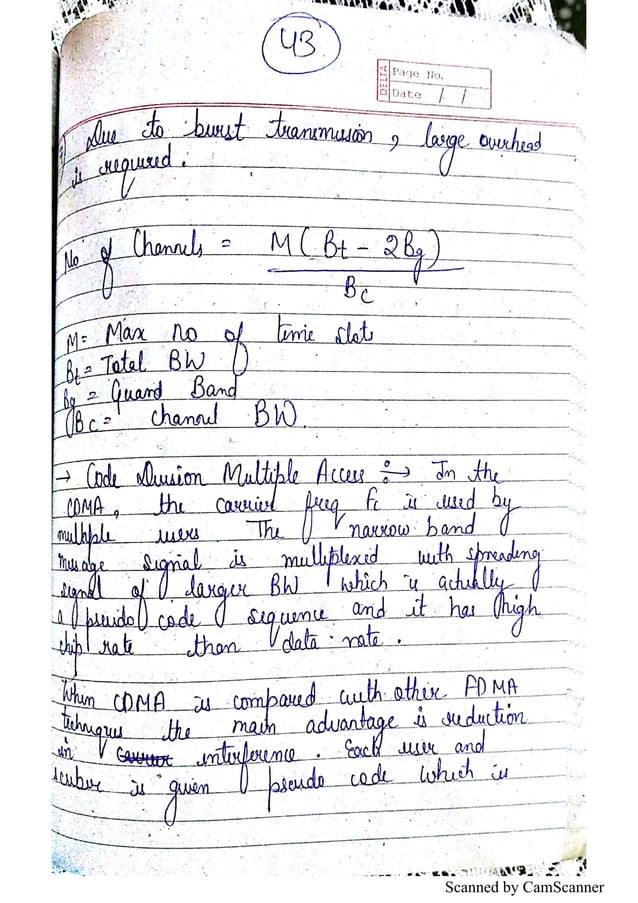 43
DELTA
Page No.
Date / /
Due to burst transmission, large overhead
is required.
No of Channels = M(Bt - 2Bg)
Bc
M = Max no of time slots
Bt = Total BW
Bg = Guard Band
Bc = channel BW
→ Code Division Multiple Access :→ In the
CDMA, the carrier freq fc is used by
multiple users The narrow band
message signal is multiplexed with spreading
signal of larger BW which is actually
a pseudo code sequence and it has high
chip rate than data rate.
When CDMA is compared with other FDMA
techniques the main advantage is reduction
in interference. Each user and
is given pseudo code which is
Scanned by CamScanner